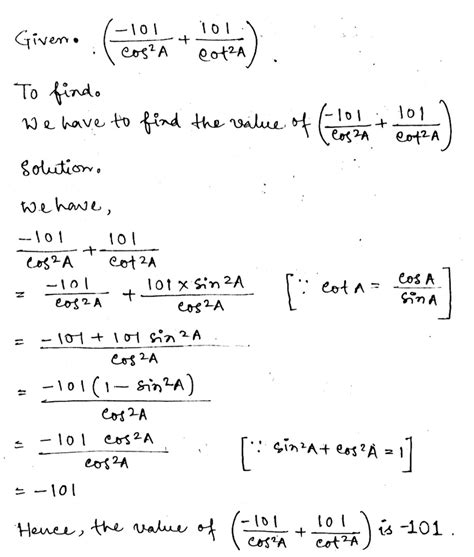 Given. (-101/cos²A + 101/cot²A).
To find.
We have to find the value of (-101/cos²A + 101/cot²A)
Solution.
We have,
-101/cos²A + 101/cot²A
= -101/cos²A + 101 × sin²A/cos²A [∵ cot A = cos A/sin A]
= -101 + 101 sin²A/cos²A
= -101(1 - sin²A)/cos²A
= -101 cos²A/cos²A [∵ sin²A + cos²A = 1]
= -101
Hence, the value of (-101/cos²A + 101/cot²A) is -101.